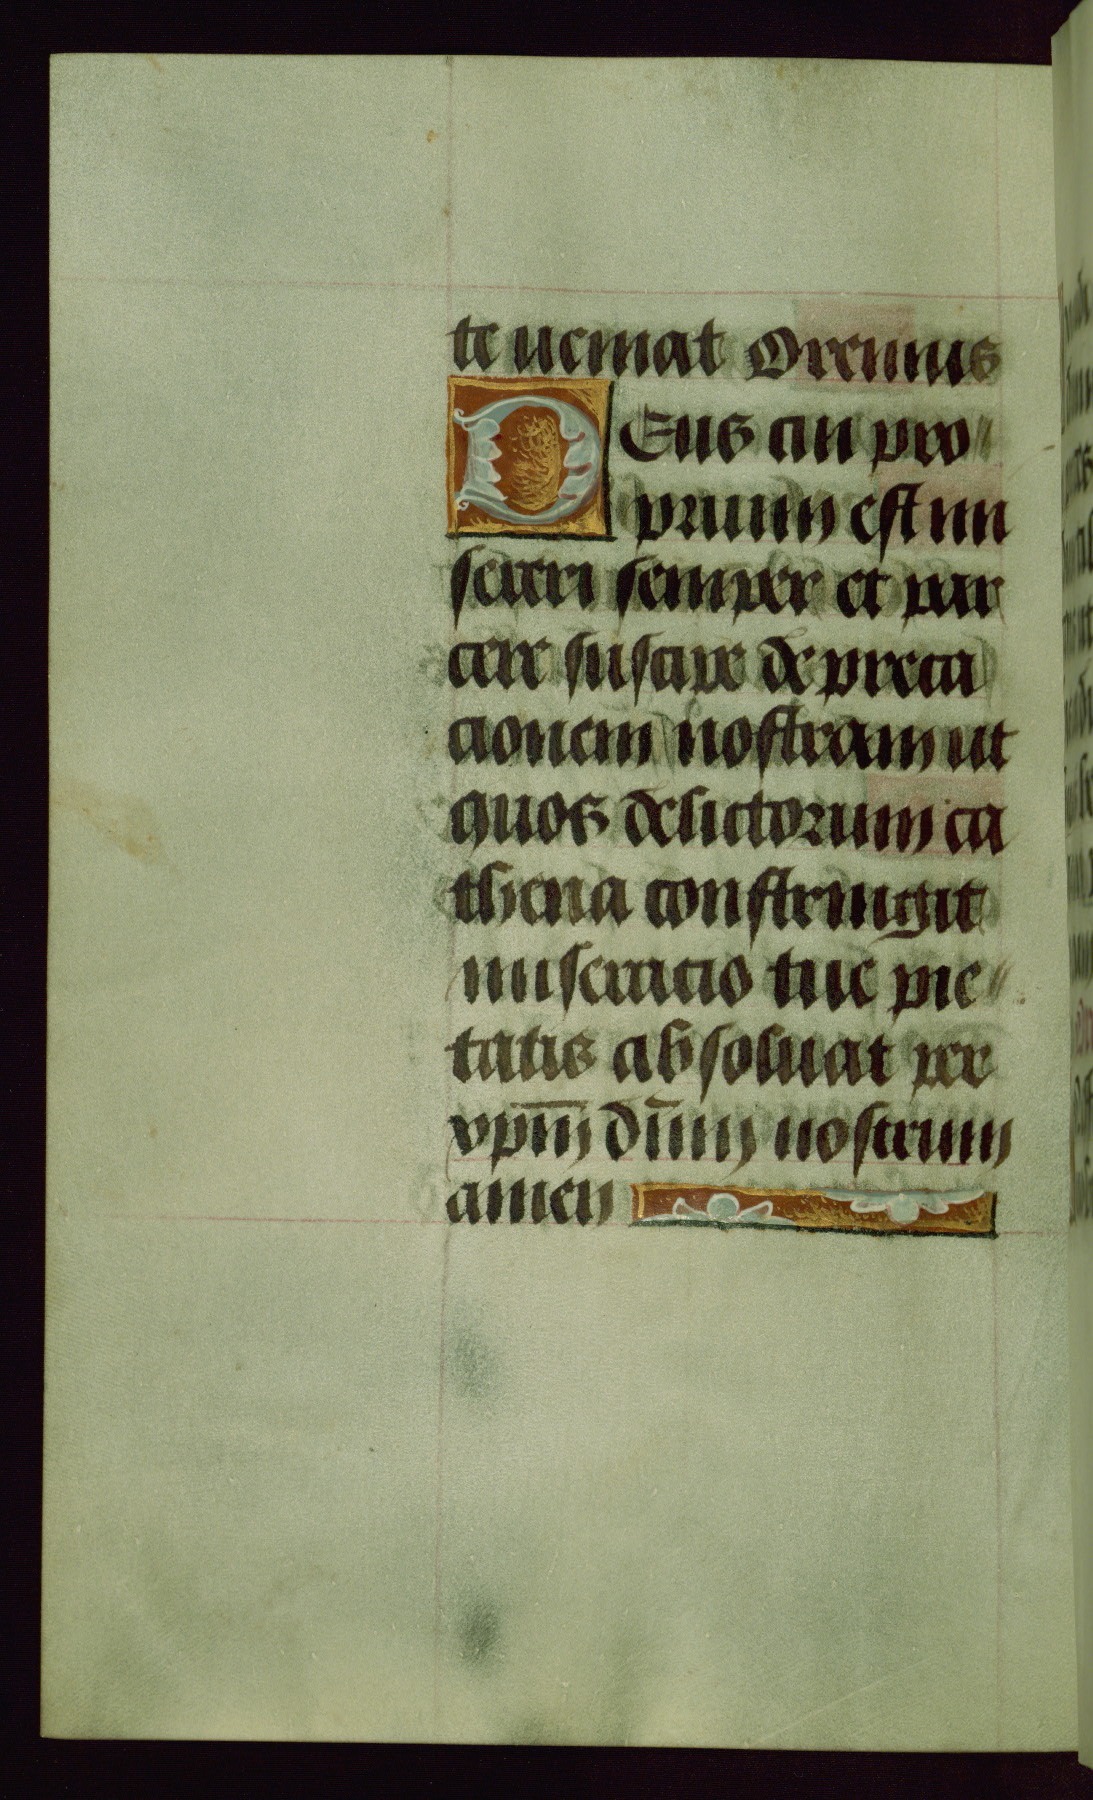 te ueniat Oremus
DEus cui pro
prium est mi
sereri semper et par
cere suscipe depreca
cionem nostram ut
quos delictorum ca
thena constringit
miseracio tue pie
tatis absoluat per
xpm̄ dn̄m nostrum
amen